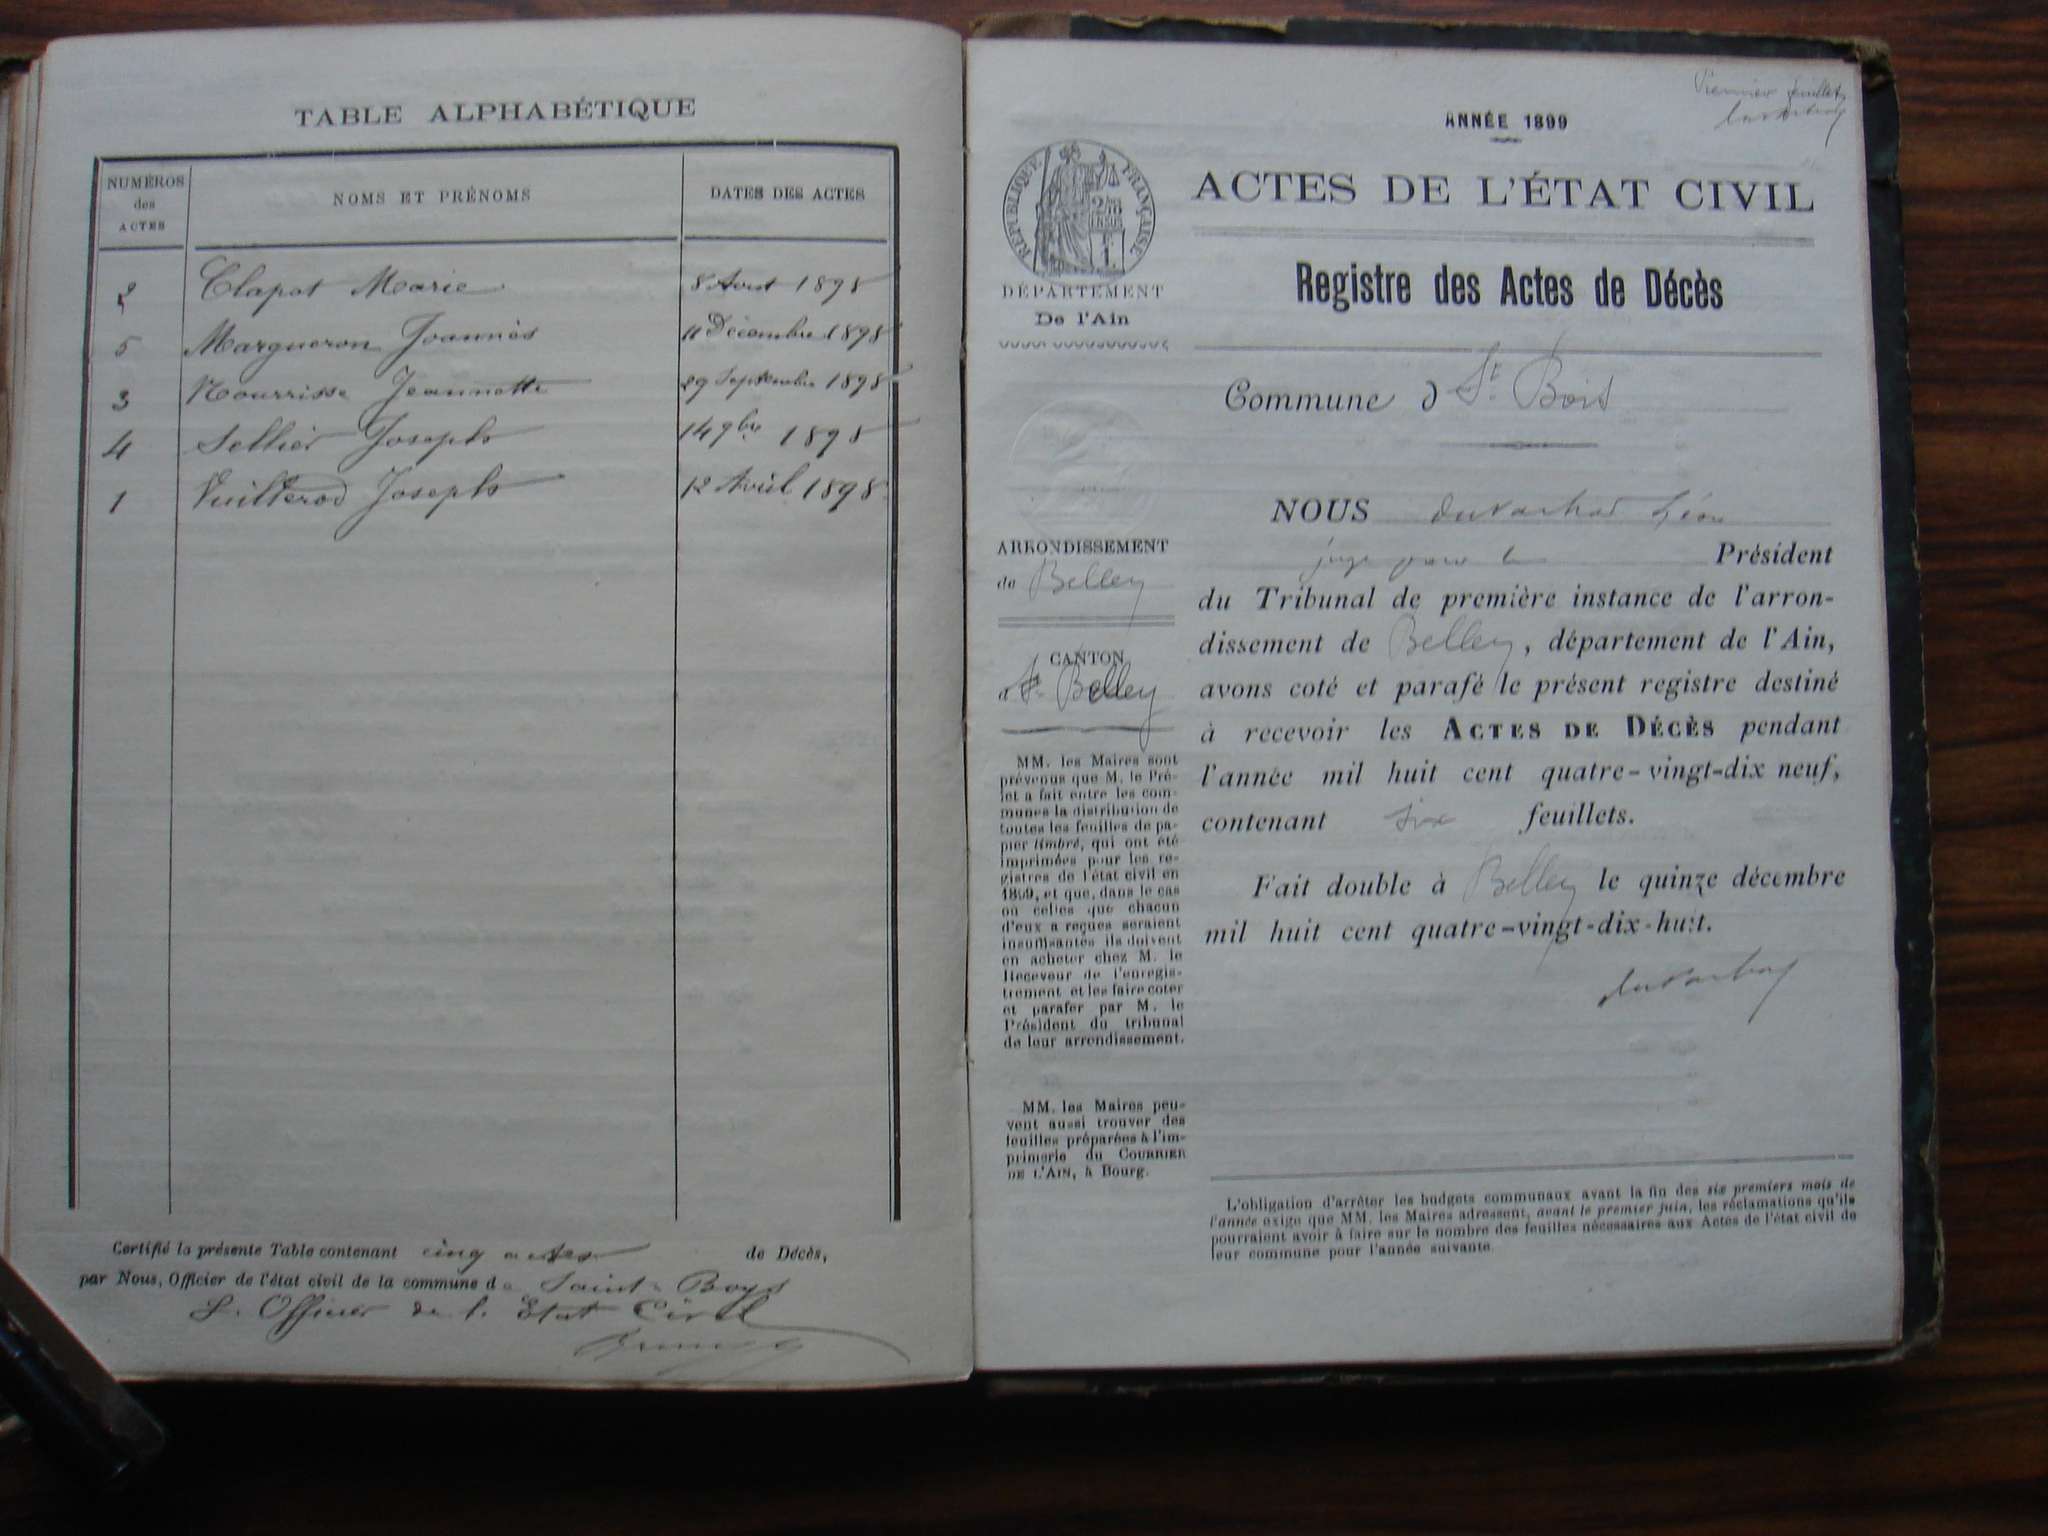 TABLE ALPHABÉTIQUE
NUMÉROS des ACTES
NOMS ET PRÉNOMS
DATES DES ACTES
2 Clapot Marie 8 Aout 1898
5 Margueron Joannès 11 Décembre 1898
3 Nourrisse Jeannette 29 Septembre 1898
4 Sellier Joseph 14 9bre 1898
1 Vuillerod Joseph 12 Avril 1898
Certifié la présente Table contenant cinq actes de Décès,
par Nous, Officier de l'état civil de la commune de Saint-Boys
L. Officier de l. Etat Civil
Premier feuillet
ANNÉE 1899
ACTES DE L'ÉTAT CIVIL
RÉPUBLIQUE FRANÇAISE
DÉPARTEMENT
De l'Ain
Registre des Actes de Décès
Commune d St. Bois
ARRONDISSEMENT
de Belley
CANTON
d Belley
MM. les Maires sont
prévenus que M. le Pré-
fet a fait entre les com-
munes la distribution de
toutes les feuilles de pa-
pier timbré, qui ont été
imprimées pour les re-
gistres de l'état civil en
1899, et que, dans le cas
où celles que chacun
d'eux a reçues seraient
insuffisantes ils doivent
en acheter chez M. le
Receveur de l'enregis-
trement et les faire coter
et parafer par M. le
Président du tribunal
de leur arrondissement.
MM. les Maires peu-
vent aussi trouver des
feuilles préparées à l'im-
primerie du COURRIER
DE L'AIN, à Bourg.
NOUS Léon
juge pour le Président
du Tribunal de première instance de l'arron-
dissement de Belley, département de l'Ain,
avons coté et parafé le présent registre destiné
à recevoir les ACTES DE DÉCÈS pendant
l'année mil huit cent quatre-vingt-dix neuf,
contenant six feuillets.
Fait double à Belley le quinze décembre
mil huit cent quatre-vingt-dix-huit.
L'obligation d'arrêter les budgets communaux avant la fin des six premiers mois de
l'année exige que MM. les Maires adressent, avant le premier juin, les réclamations qu'ils
pourraient avoir à faire sur le nombre des feuilles nécessaires aux Actes de l'état civil de
leur commune pour l'année suivante.